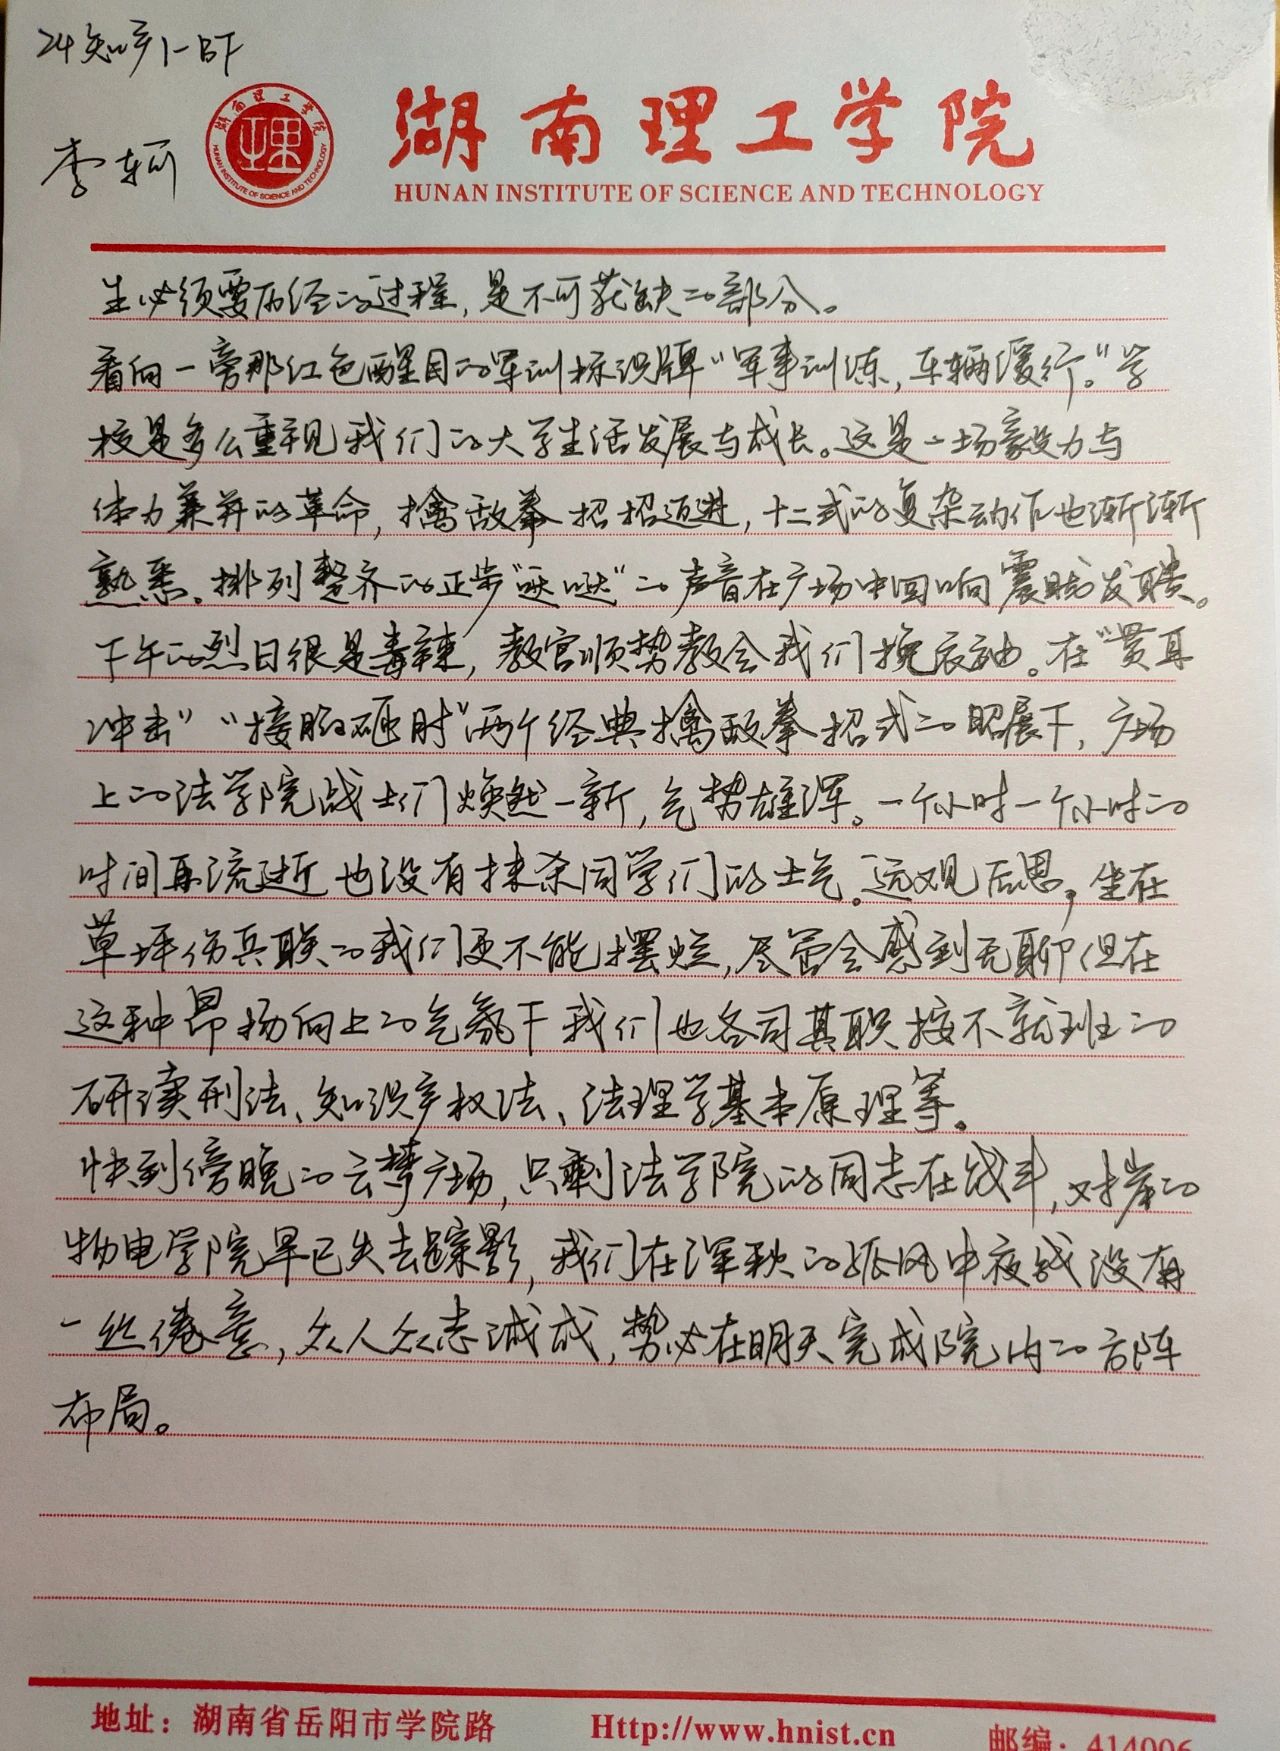 24知产1-BF
李轲
湖南理工学院
HUNAN INSTITUTE OF SCIENCE AND TECHNOLOGY
生必须要历经的过程,是不可或缺的部分。
看向一旁那红色醒目的军训标识牌“军事训练,车辆缓行。”学
校是多么重视我们的大学生活发展与成长。这是一场毅力与
体力兼并的革命,擒敌拳招招迈进,十二式的复杂动作也渐渐
熟悉。排列整齐的正步“哒哒”的声音在广场中回响震聩发聩。
下午的烈日很是毒辣,教官顺势教会我们挽衣袖。在“贯耳
冲击”“接脚砸肘”两个经典擒敌拳招式的昭展下,广场
上的法学院战士们焕然一新,气势雄浑。一个小时一个小时的
时间再流逝也没有抹杀同学们的士气。远观后思,坐在
草坪伤兵联的我们更不能摆烂,尽管会感到无聊但在
这种昂扬向上的气氛下我们也各司其职按不就班的
研读刑法、知识产权法、法理学基本原理等。
快到傍晚的云梦广场,只剩法学院的同志在战斗,对岸的
物电学院早已失去踪影,我们在深秋的振风中夜战没有
一丝倦意,众人众志诚成,势必在明天完成院内的方阵
布局。
地址:湖南省岳阳市学院路
Http://www.hnist.cn
邮编:414006